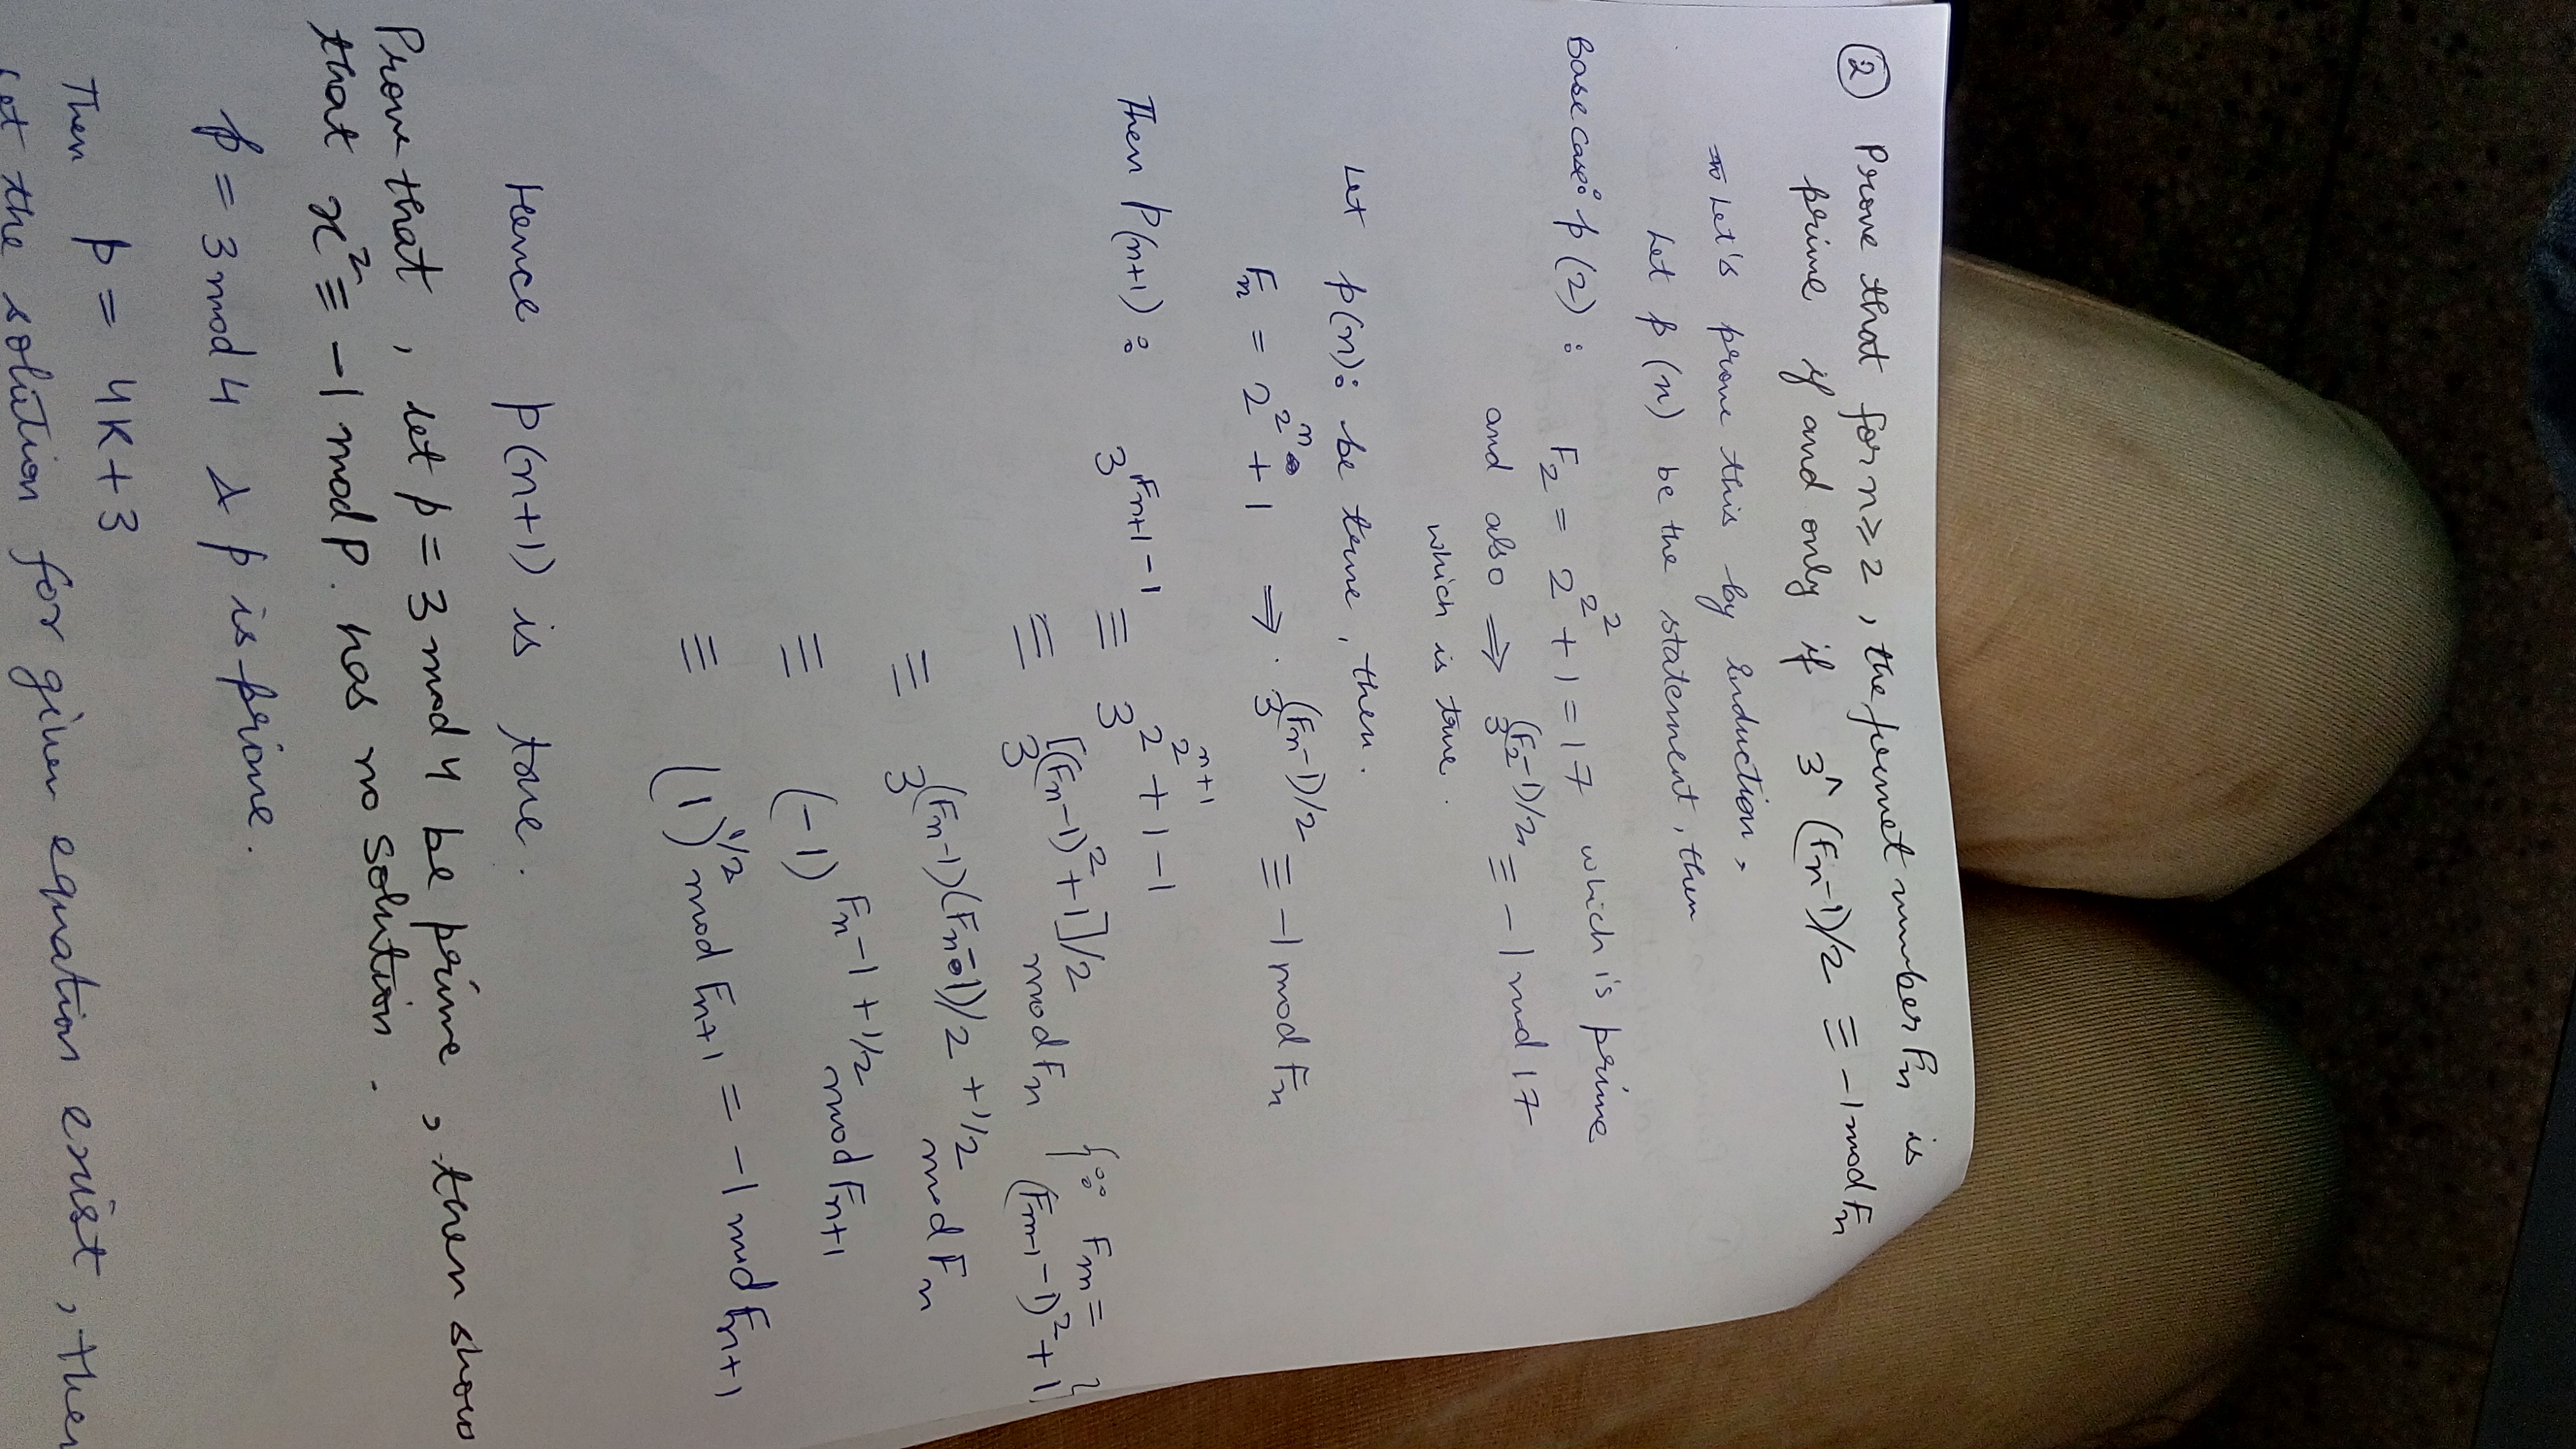 ② Prove that for n ≥ 2, the fermet number Fn is
prime if and only if 3^(Fn-1)/2 ≡ -1 mod Fn
⇒ Let's prove this by Induction,
Let p(n) be the statement, then
Base case: p(2): F₂ = 2^2^2 + 1 = 17 which is prime
and also ⇒ 3^(F₂-1)/2 ≡ -1 mod 17
which is true.
Let p(n): be true, then.
Fn = 2^2^n + 1 ⇒ 3^(Fn-1)/2 ≡ -1 mod Fn
Then P(n+1): 3^Fn+1 -1 ≡ 3^2^2^n+1 + 1 - 1
≡ 3^[(Fn-1)²+1]/2 mod Fn {∵ Fm = (Fm-1 -1)² + 1}
≡ 3^(Fn-1)(Fn-1)/2 + 1/2 mod Fn
≡ (-1)^Fn-1+1/2 mod Fn+1
≡ (1)^1/2 mod Fn+1 = -1 mod Fn+1
Hence p(n+1) is true.
Prove that, let p = 3 mod 4 be prime, then show
that x² ≡ -1 mod p. has no solution.
p = 3 mod 4 & p is prime.
Then p = 4K+3
Let the solution for given equation exist, then